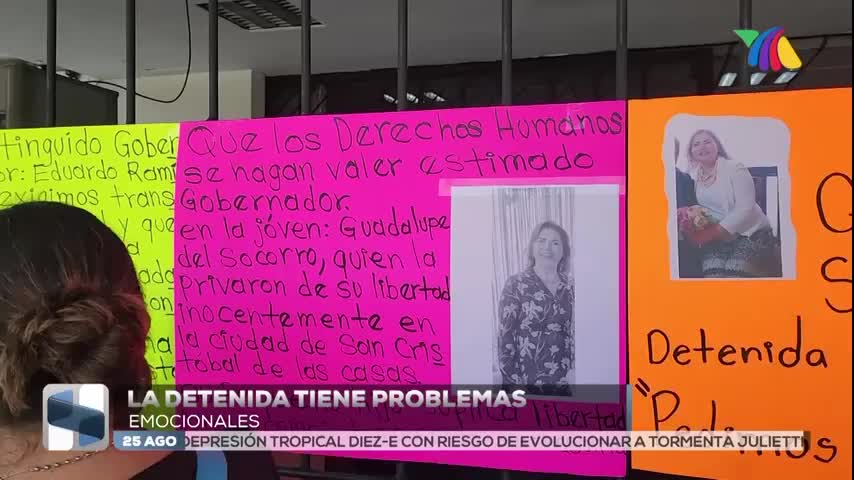 tinguido Gober
or: Eduardo Ramí
exigimos trans
y que
Que los Derechos Humanos
se hagan valer estimado
Gobernador.
en la jóven: Guadalupe
del Socorro, quien la
privaron de su libertad
inocentemente en
la ciudad de San Cris
tobal de las casas.
suplica libertad
Detenida
"Pedimos
LA DETENIDA TIENE PROBLEMAS
EMOCIONALES
25 AGO DEPRESIÓN TROPICAL DIEZ-E CON RIESGO DE EVOLUCIONAR A TORMENTA JULIETT